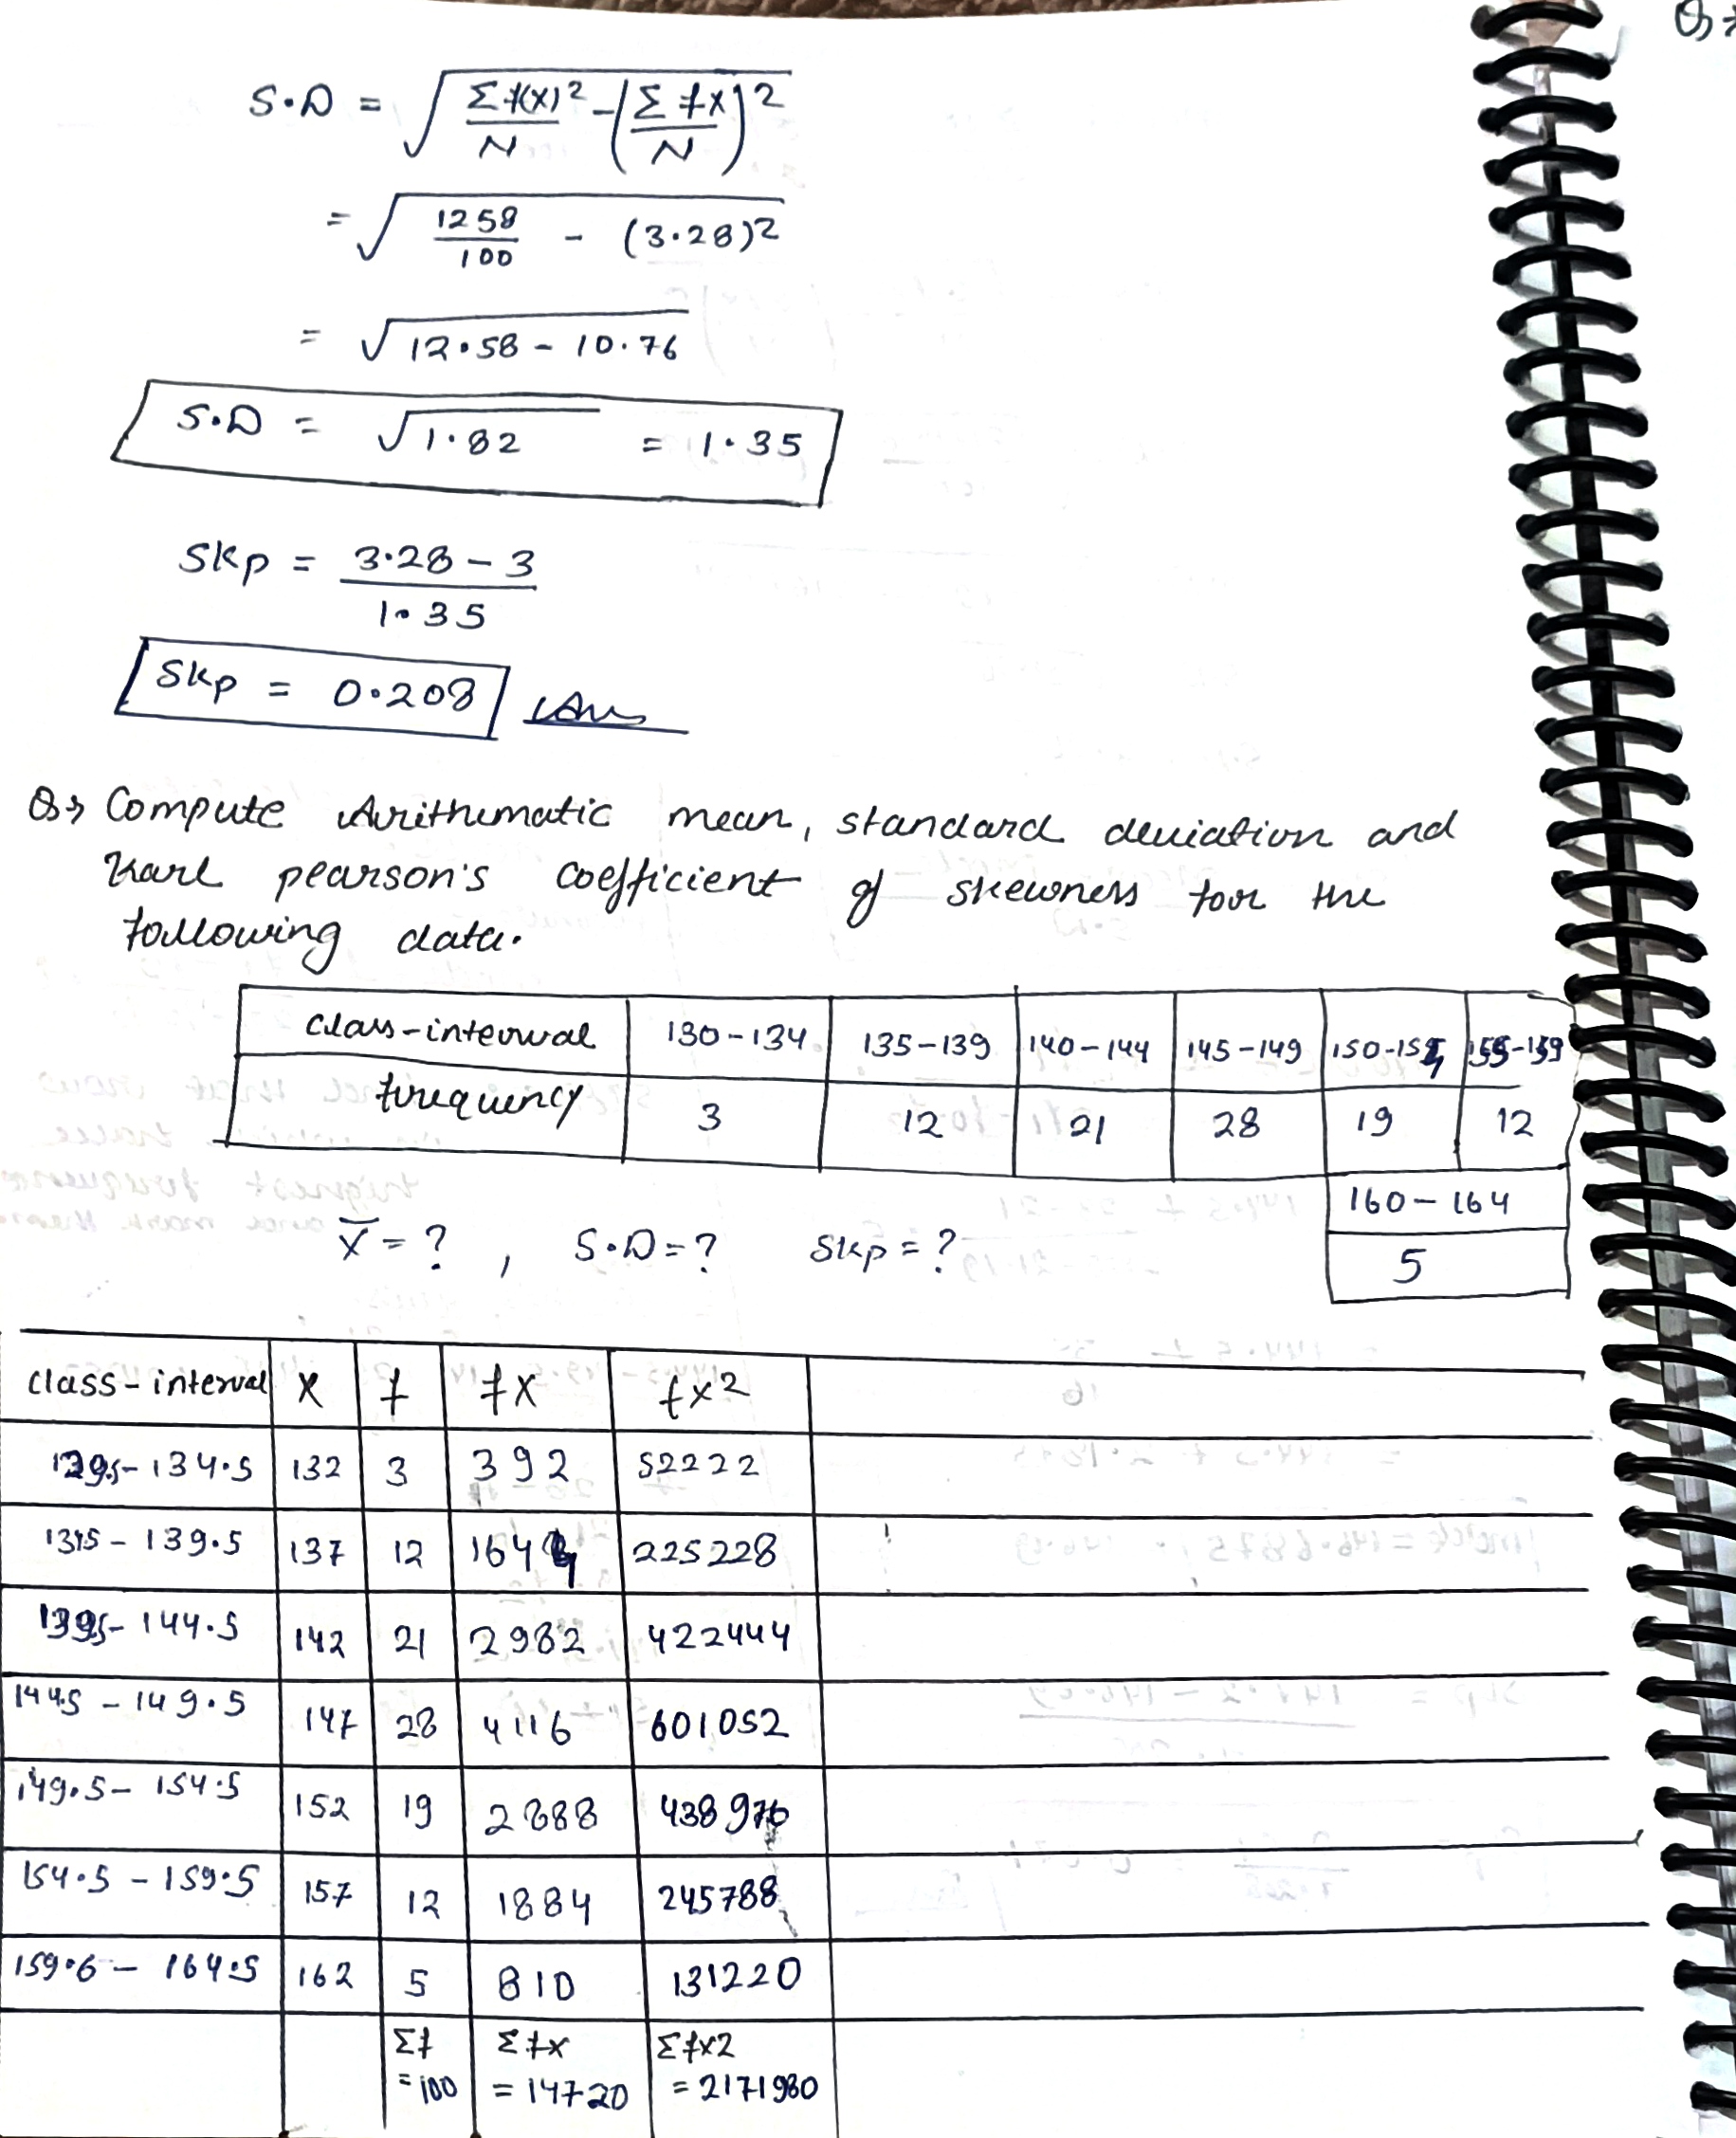 S.D = √ Σf(x)² / N - (Σfx / N)²
= √ 1258 / 100 - (3.28)²
= √ 12.58 - 10.76
S.D = √1.82 = 1.35
Skp = 3.28 - 3 / 1.35
Skp = 0.208 Ans
Q→ Compute Arithematic mean, standard deviation and
Karl pearson's coefficient of skewness for the
following data.
class-interval 130-134 135-139 140-144 145-149 150-154 155-159
frequency 3 12 21 28 19 12
160-164
5
X̄ = ? , S.D = ? Skp = ?
class-interval x f fx fx2
129.5-134.5 132 3 392 52222
134.5-139.5 137 12 1644 225228
139.5-144.5 142 21 2982 422444
144.5-149.5 147 28 4116 601052
149.5-154.5 152 19 2888 438976
154.5-159.5 157 12 1884 245788
159.6-164.5 162 5 810 131220
Σf Σfx Σfx2
=100 =14720 =2171980